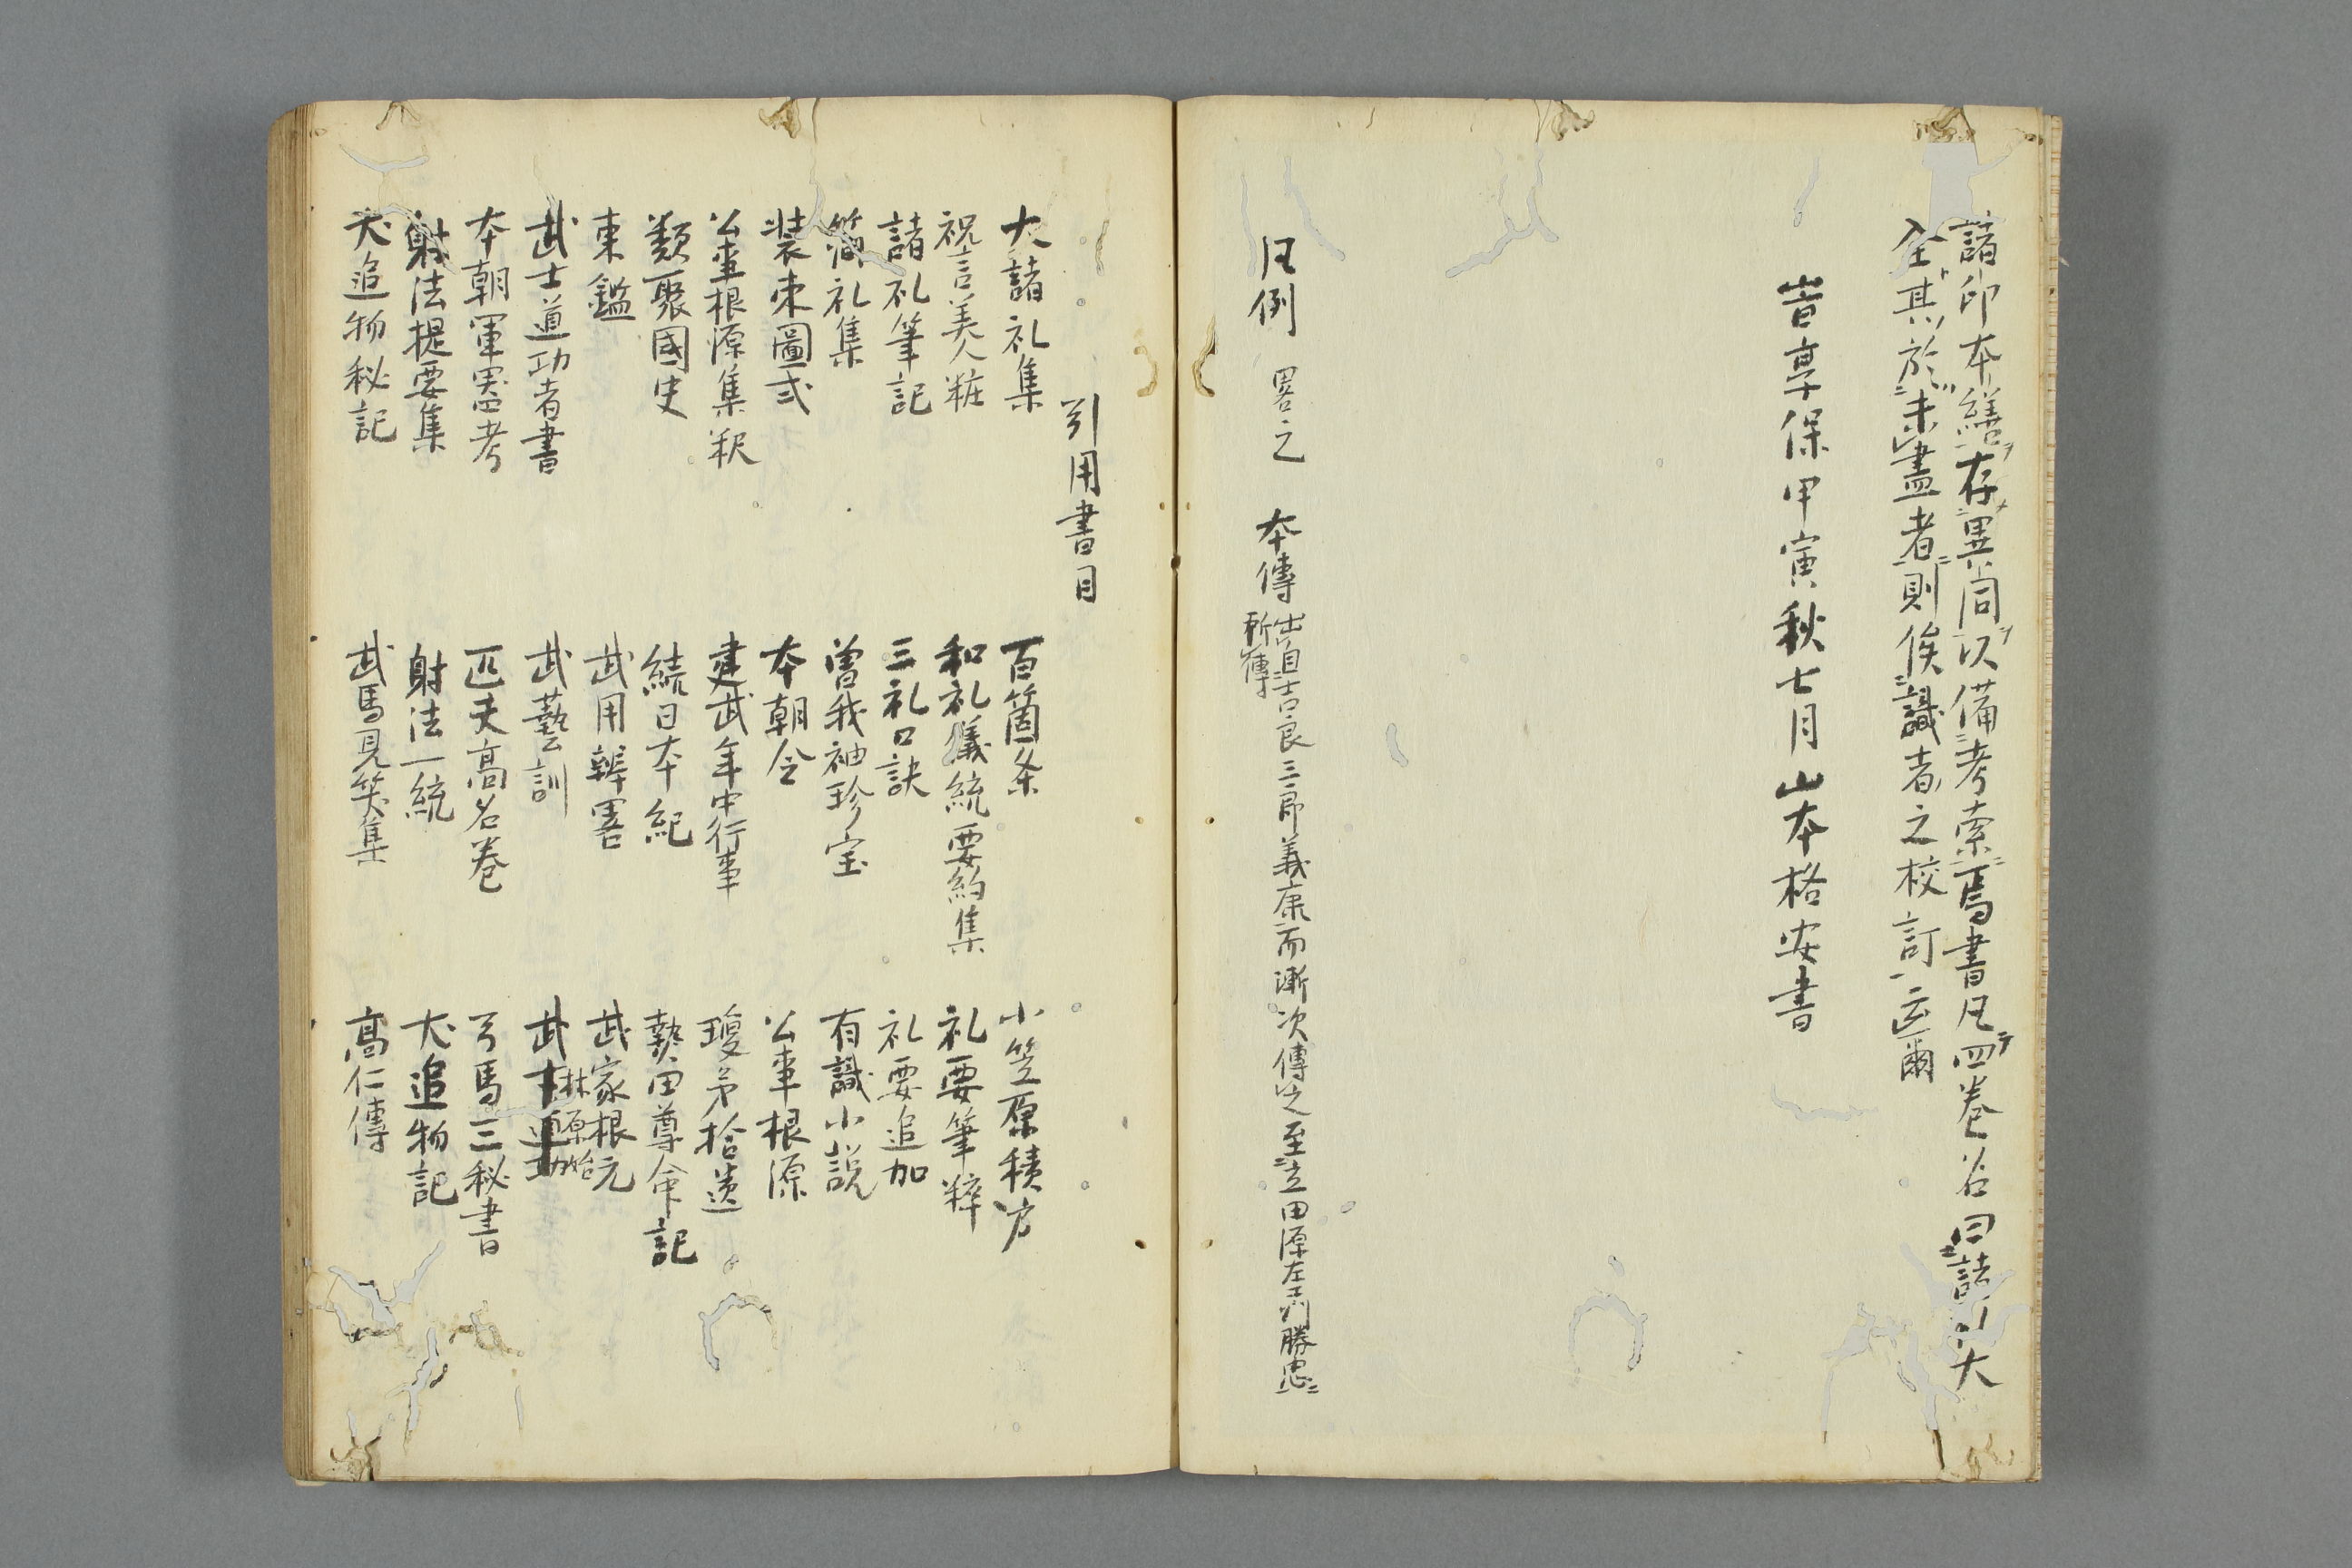 諸印本繕存異同以備考索焉書凡四巻名曰諸礼大
全其於未盡者則俟識者之校訂云爾
旹享保甲寅秋七月山本格安書
凡例 畧之 本傳 出自吉良三郎義康而漸次傳之至立田源左衛門勝忠
所傳
引用書目
大諸礼集 百箇条 小笠原積方
祝言美人粧 和礼儀統要約集 礼要筆粹
諸礼筆記 三礼口訣 礼要追加
簡礼集 曽我袖珍宝 有識小説
装束圖式 本朝令 公事根源
公事根源集釈 建武年中行事 瓊矛拾遺
類聚國史 続日本紀 熱田尊命記
東鑑 武用辨畧 武家根元
武士道功者書 武藝訓 武林原始
本朝軍器考 匹夫高名巻 弓馬三秘書
射法提要集 射法一統 犬追物記
犬追物秘記 武馬見笑集 高仁傳